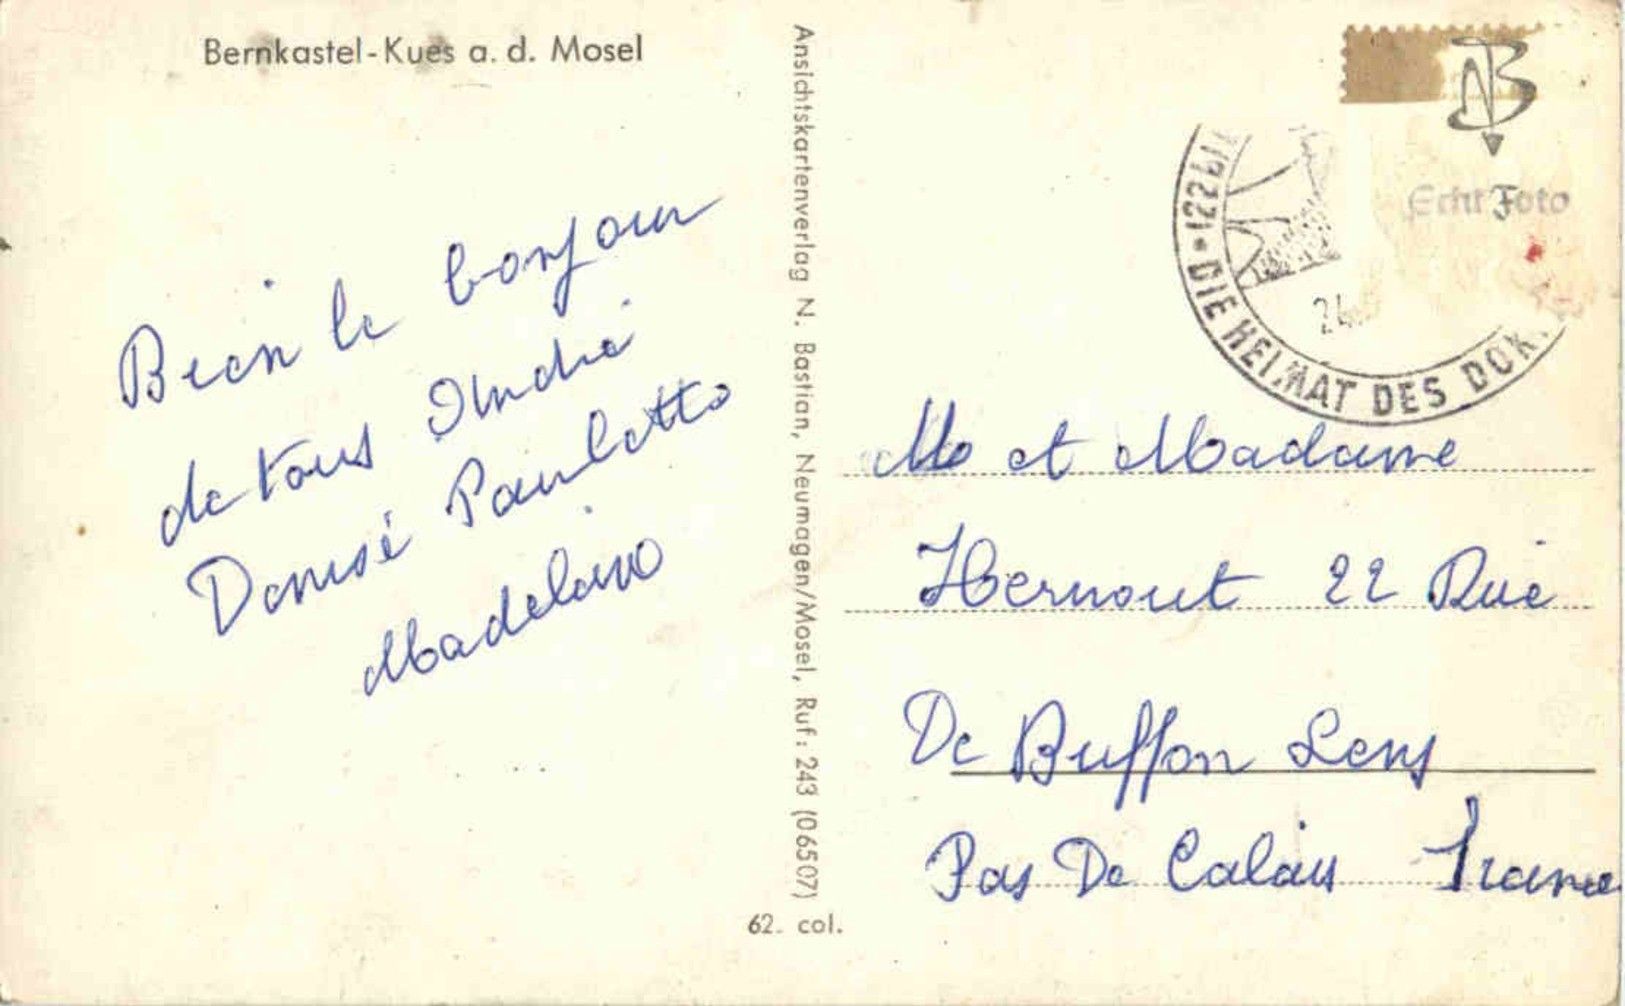 Bernkastel-Kues a. d. Mosel
Bien le bonjour
de tous André
Denise Paulette
Madeleine
Ansichtskartenverlag N. Bastian, Neumagen/Mosel, Ruf: 243 (06507)
62. col.
Echt Foto
DIE HEIMAT DES DOK
M et Madame
Hernout 22 Rue
De Buffon Lens
Pas De Calais France